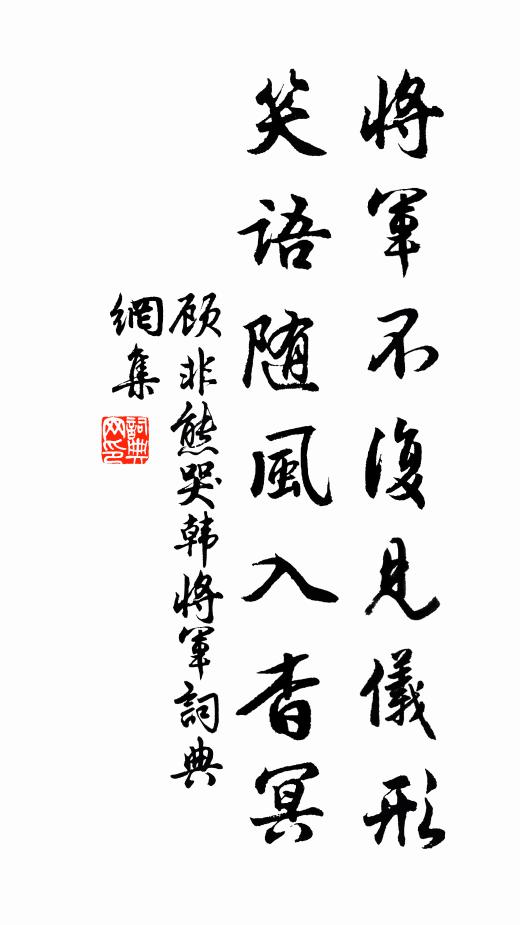 將軍不復見儀形
笑語随風入杳冥
顾非熊哭韩將軍詞典
網集
詞典
网印